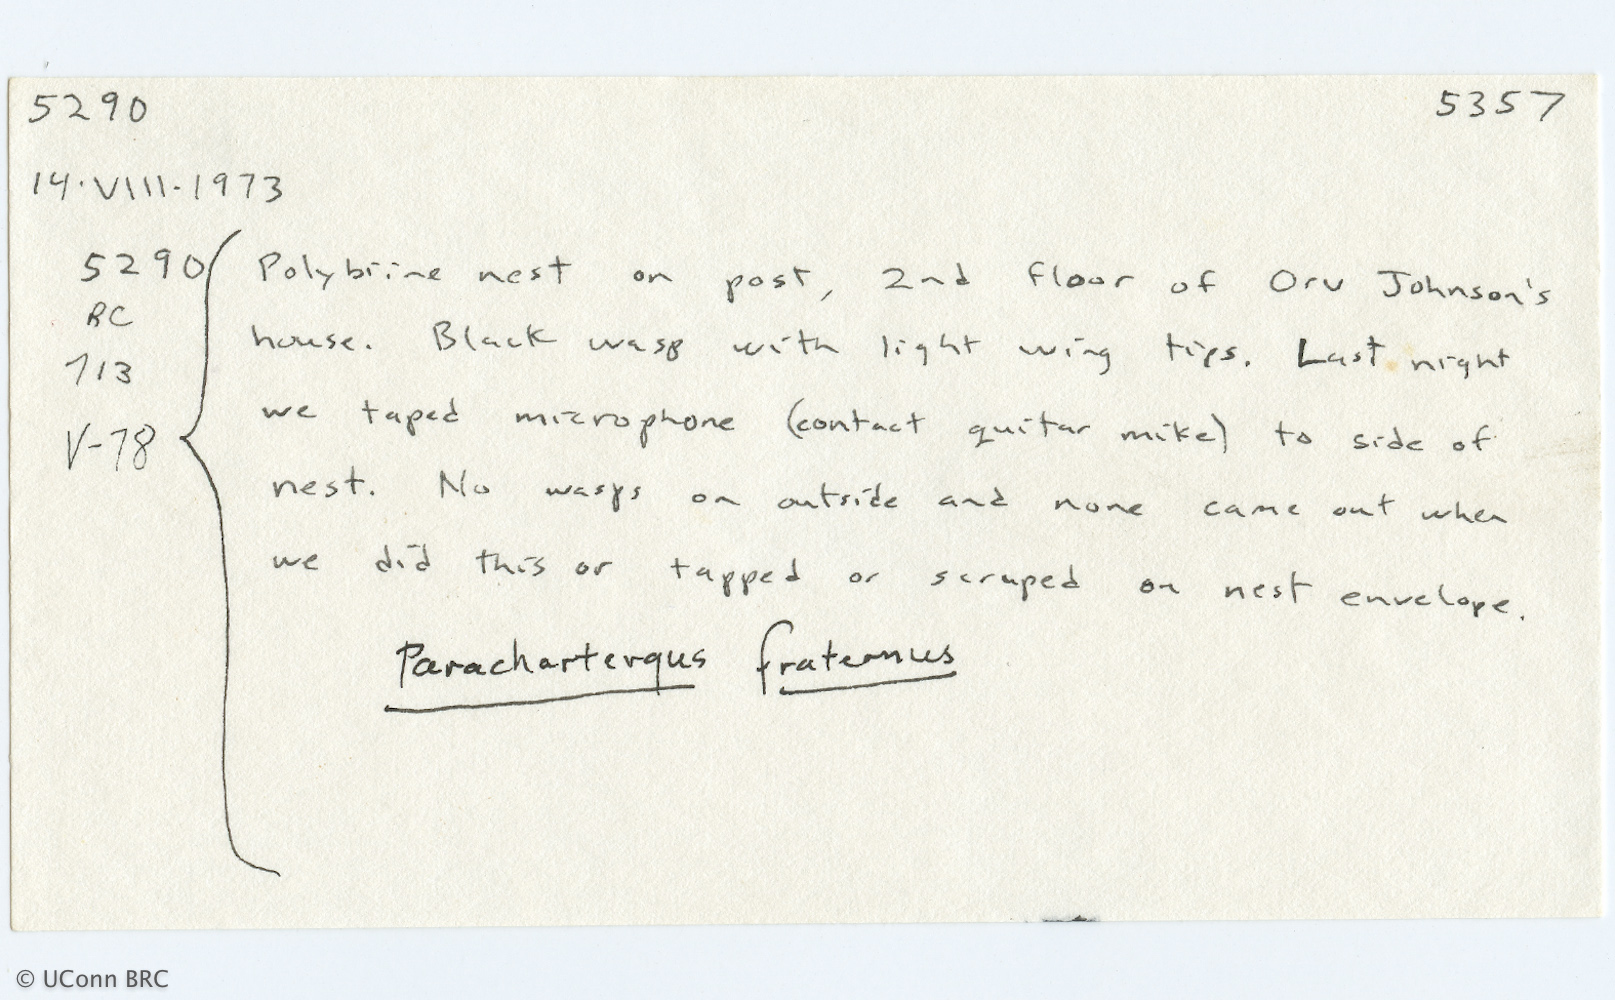 5290 5357
14·VIII·1973
5290 Polybiine nest on post, 2nd floor of Orv Johnson's
RC house. Black wasp with light wing tips. Last night
713 we taped microphone (contact guitar mike) to side of
V-78 nest. No wasps on outside and none came out when
we did this or tapped or scraped on nest envelope.
Parachartergus fraternus
© UConn BRC